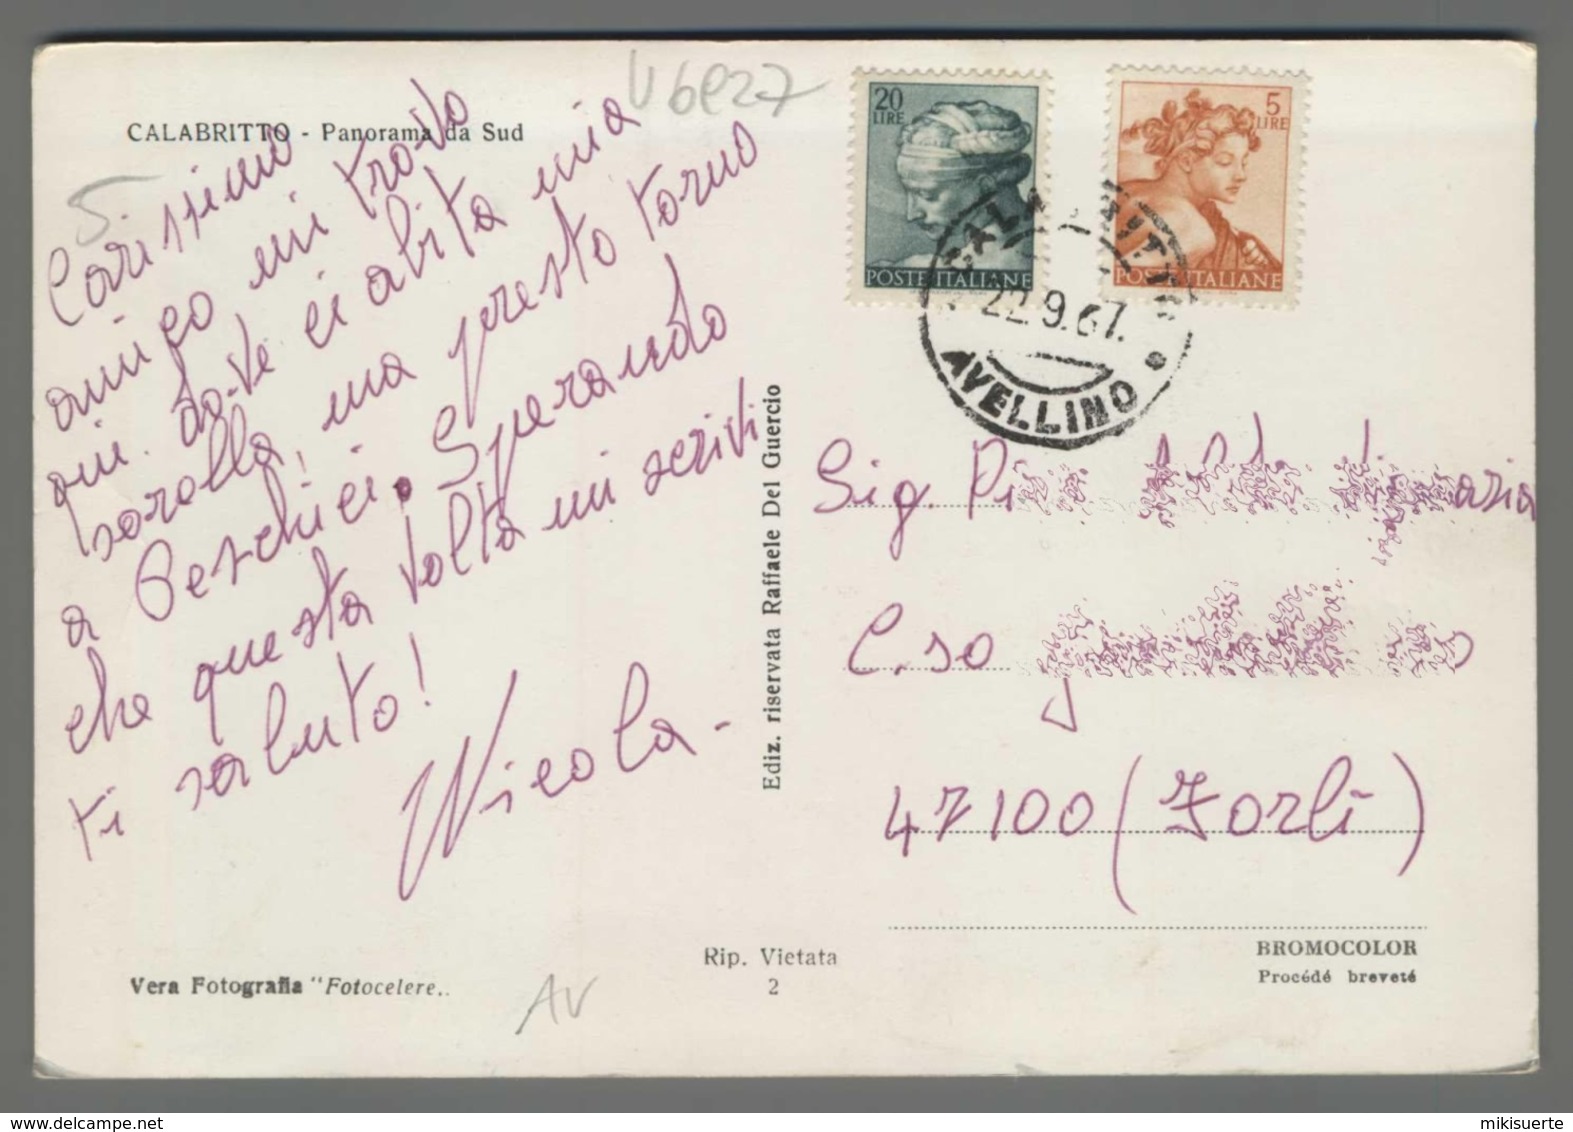 U6e27
CALABRITTO - Panorama da Sud
5
Carissimo
amico, mi trovo
qui dove ci abita mia
sorella, ma presto torno
a Peschici. Sperando
che questa volta mi scrivi
ti saluto!
Nicola -
20
LIRE
POSTE ITALIANE
5
LIRE
POSTE ITALIANE
CALABRITTO
22.9.67.
AVELLINO
Ediz. riservata Raffaele Del Guercio
Sig. Pi
C.so
47100 (Forlì)
Rip. Vietata
2
Vera Fotografia "Fotocelere„
AV
BROMOCOLOR
Procédé breveté
mikisuerte